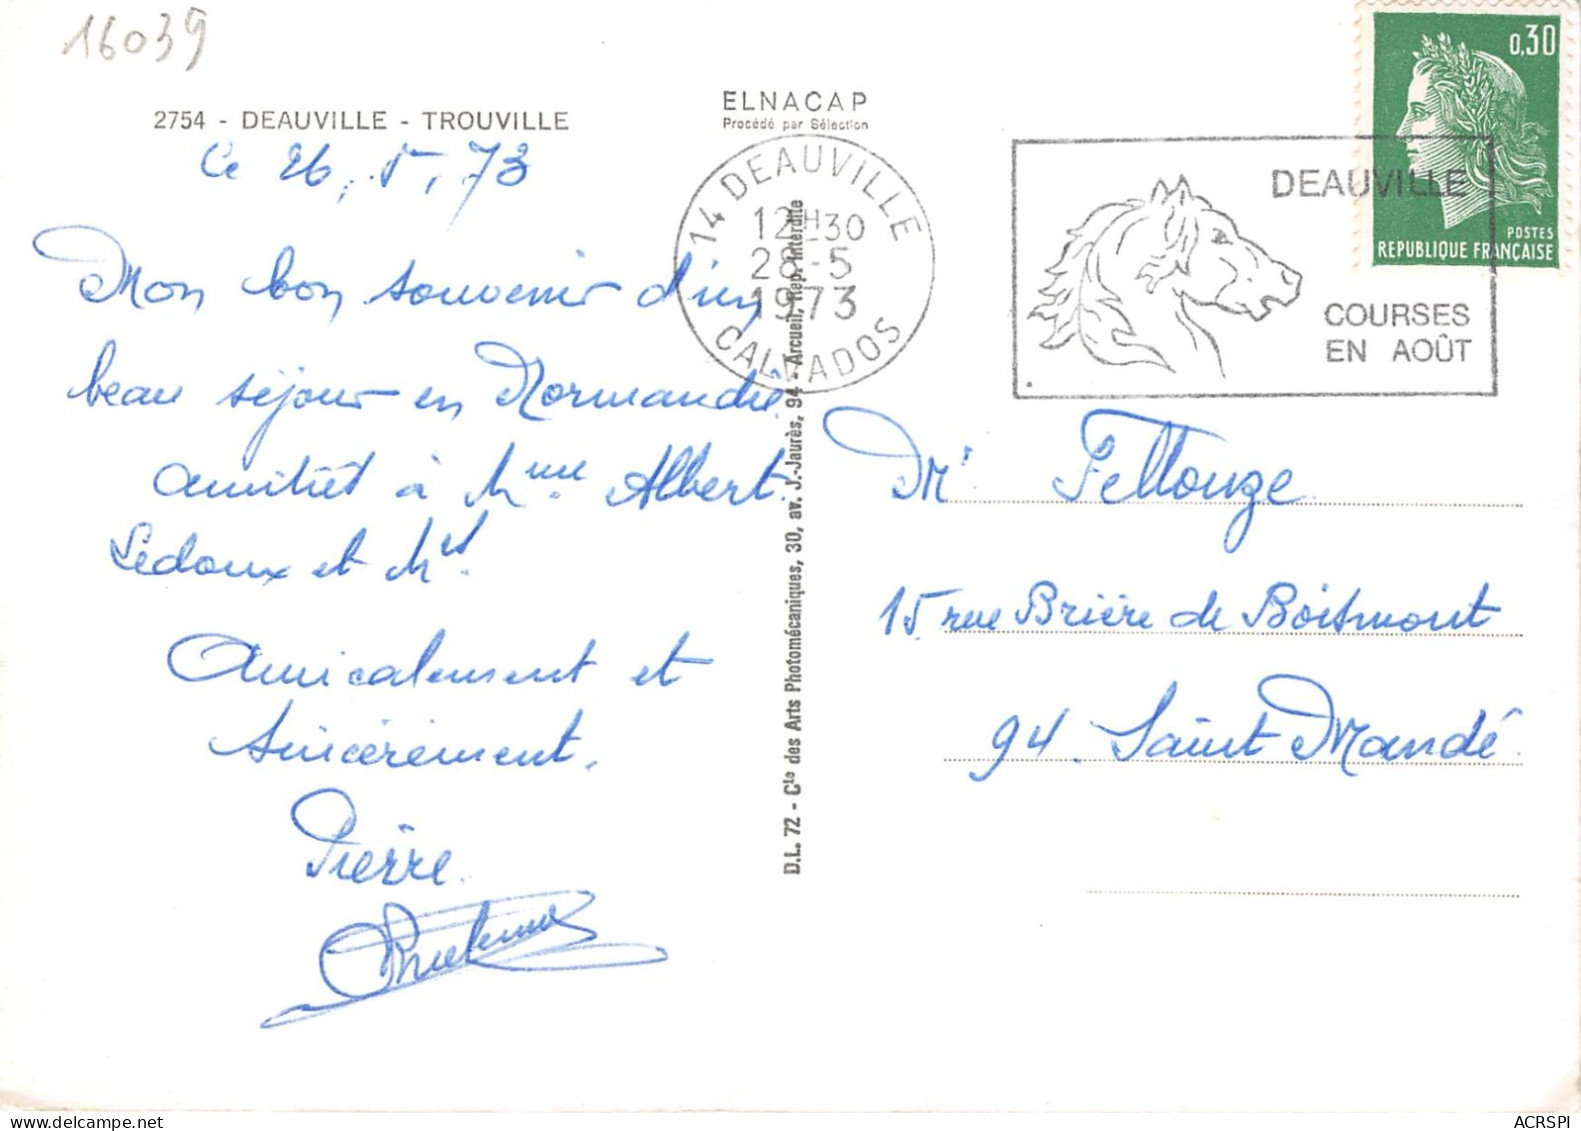 16039
2754 - DEAUVILLE - TROUVILLE
ELNACAP
Procédé par Sélection
Ce 26, 5, 73
Mon bon souvenir d'un
beau séjour en Normandie.
amitiés à Mme Albert
Ledoux et Mr.
Amicalement et
sincèrement.
Pierre.
14 DEAUVILLE
12H30
28-5
1973
CALVADOS
DEAUVILLE
COURSES
EN AOÛT
0,30
POSTES
REPUBLIQUE FRANÇAISE
D.L. 72 - Cie des Arts Photomécaniques, 30, av. J.-Jaurès, 94 - Arcueil, Rep. Interdite
Mr Fellouze
15 rue Brière de Boismont
94. Saint Mandé
ACRSPI